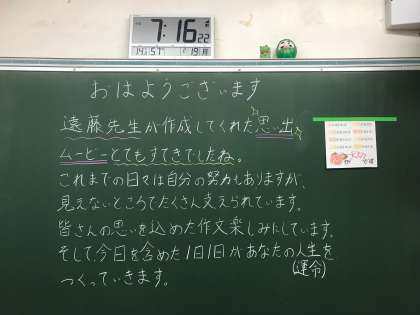 7:16 22
おはようございます
遠藤先生が作成してくれた思い出
ムービーとてもすてきでしたね。
これまでの日々は自分の努力もありますが、
見えないところでたくさん支えられています。
皆さんの思いを込めた作文楽しみにしています。
そして、今日を含めた1日1日があなたの人生を
(運命)
つくっていきます。